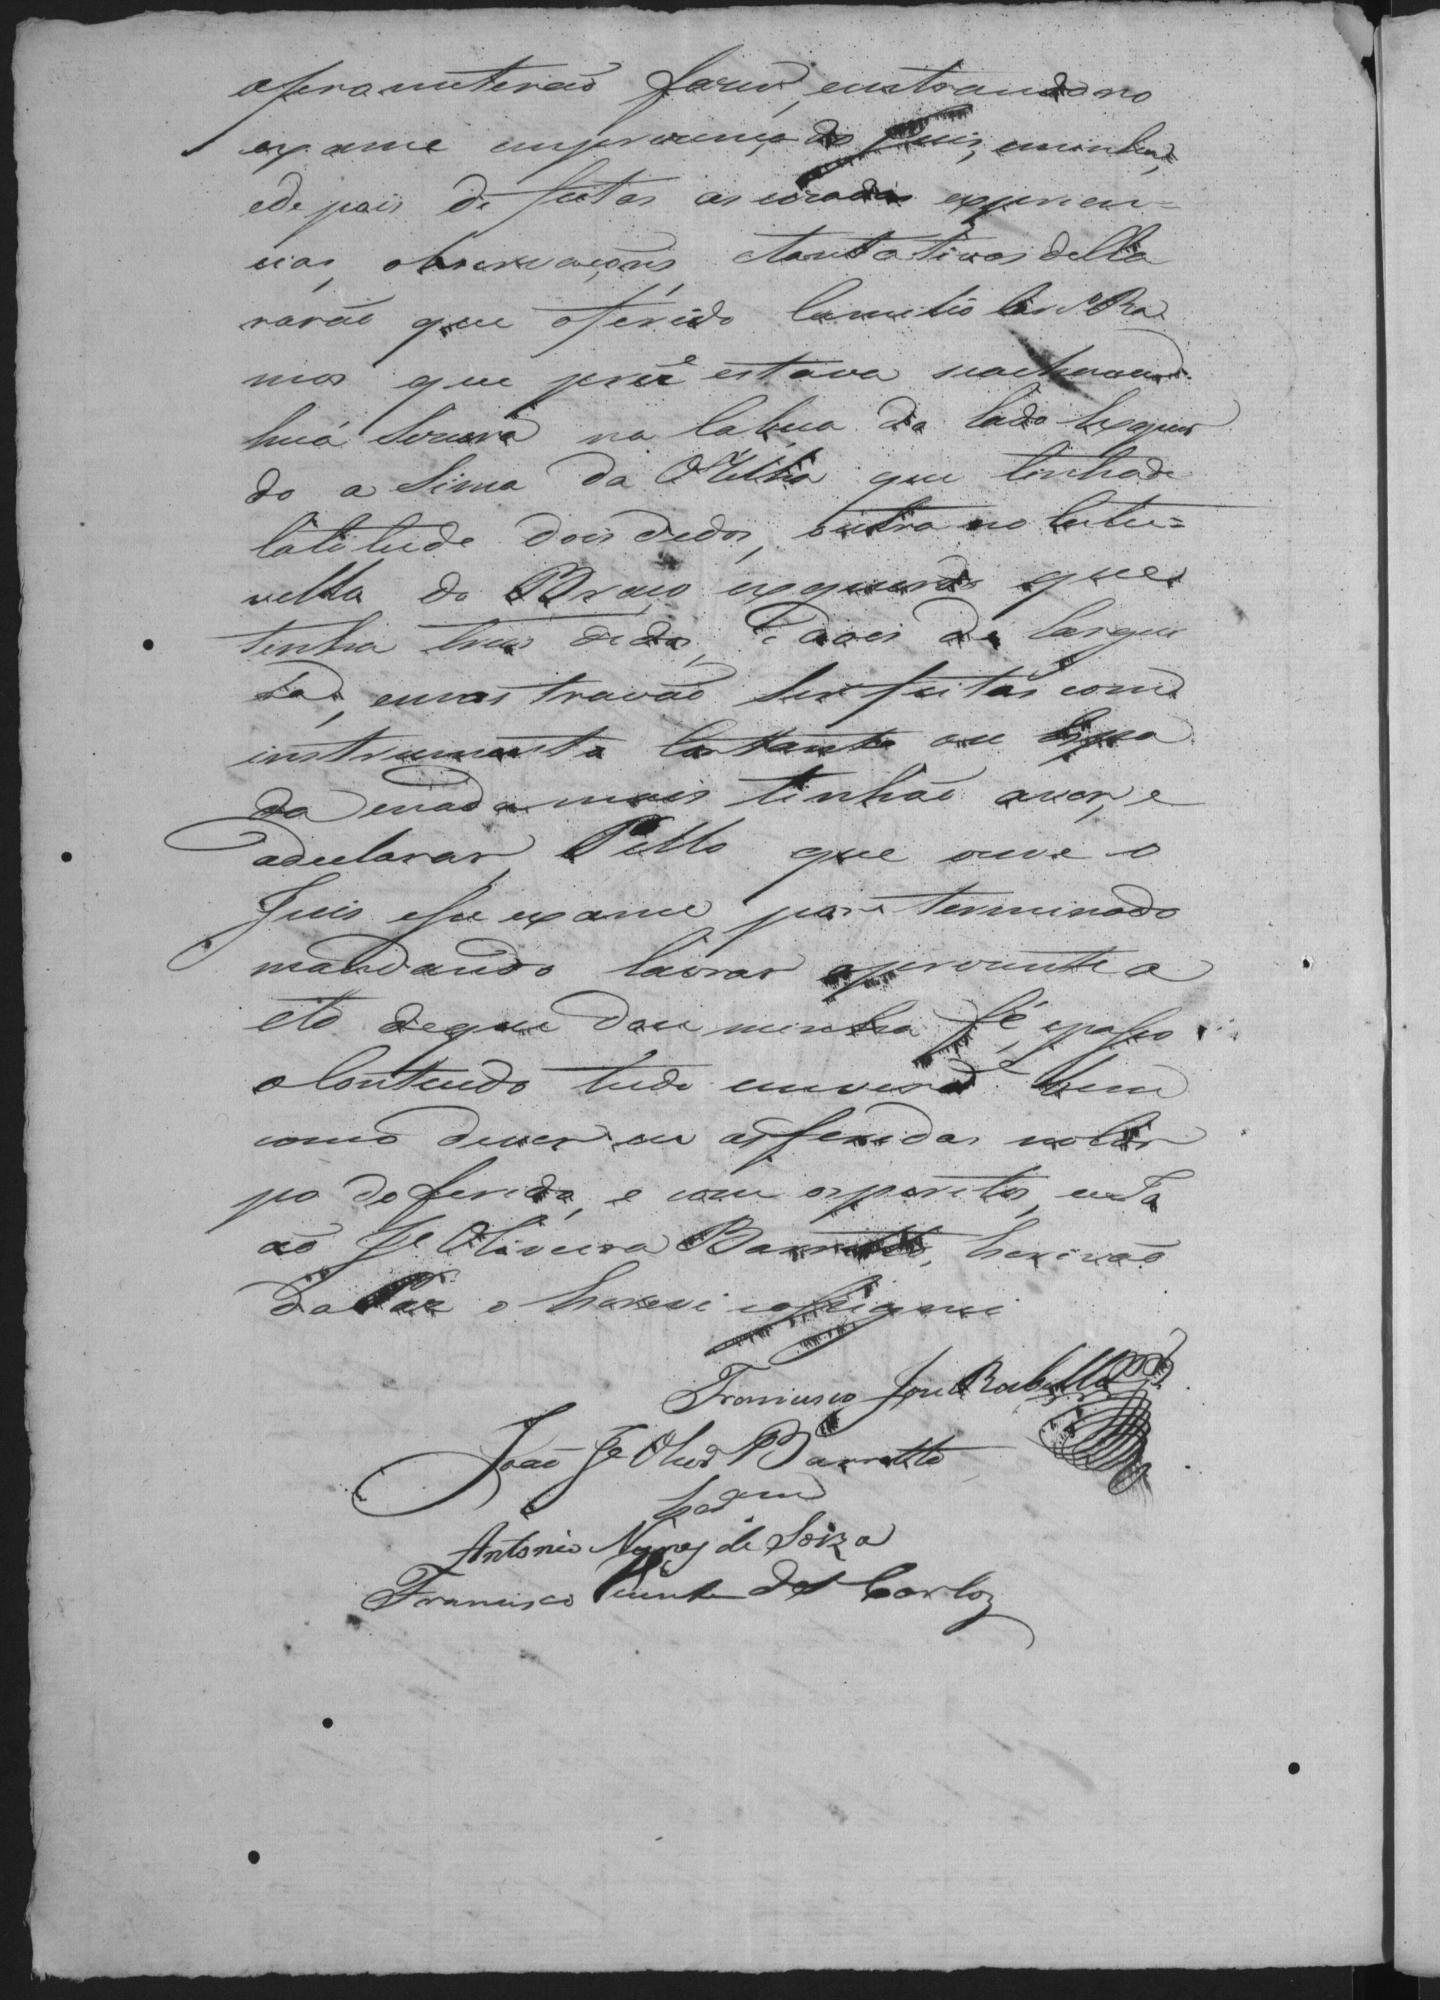 aprometerão fazer, entrando no
exame em prezença do Juis, e minha,
e de pois de feitas as
cias, observações, e tentativas decla
rarão que oferido Camilio Ramos
mos que prez.e estava
huá na Cabeça do lado Esquer
do a Sima da Orelha que tinha de
latitude dois dedos, outra no Cutu=
vello do Braço esquerdo que
tinha tres dedos, e dois de largu
ra, e mostravão ser feitas com
instrumento Cortante ou
da e nada mais tinhão aver, e
adeclarar, Pello que ouve o
Juis esse exame por terminado
mandando lavrar aprezente a
to de que dou minha fé, e passo
o Conteudo tudo em verd.e bem
como de ver eu as feridas no Cor
po do ferido, e com os peritos, eu Jo
ão Je Oliveira Barretto, Escrivão
da Paz o Escrevi easignei
Francisco Jose Rabello
João Je Olivra Barretto
Antonio Nunes de Soiza
Francisco Vicente de Carlos